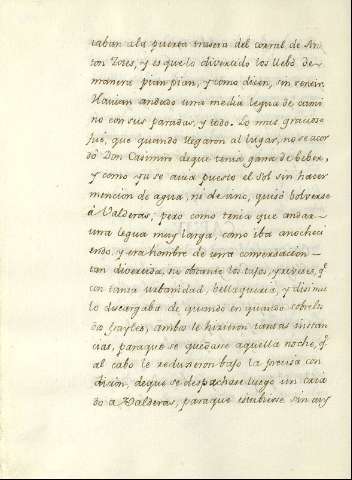 taban a la puerta trasera del corral de An
ton Zotes, y es que lo divertido los llebó de
manera pian pian, y como dicen, sin sentir.
Havian andado una media legua de cami
no con sus paradas, y todo. Lo mas gracioso
fué, que quando llegaron al lugar, no se acor
dó Don Casimiro de que tenia gana de beber,
y como ya se avia puesto el Sol sin hacer
mencion de agua, ni de vino, quisó bolverse
á Valderas, pero como tenia que andar
una legua muy larga, como iba anocheci
endo, y era hombre de una conversacion
tan divertida, no obstante los tajos, y reveses, q.^e
con tanta urbanidad, bellaqueria, y disimu
lo descargaba de quando en quando sobre los
dos frayles, ambos le hicieron tantas instan
cias, para que se quedase aquella noche, q.^e
al cabo le reduxeron bajo la precisa con
dicion, de que se despachase luego un cria
do a Valderas, para que estubiese sin cuy